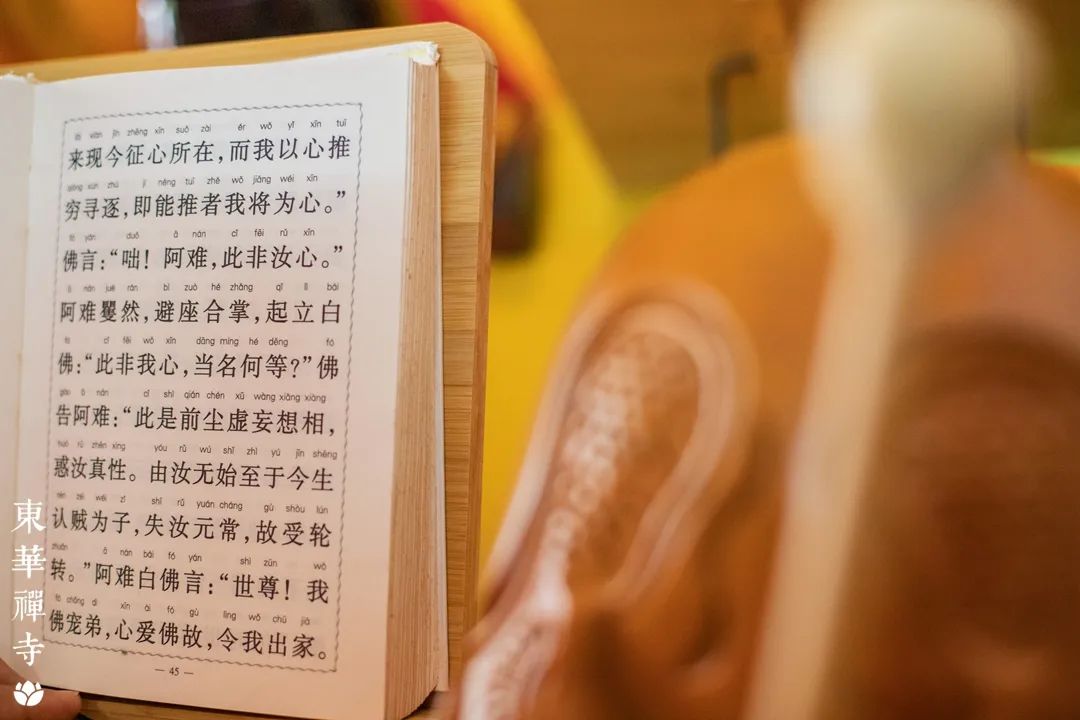 lái xiàn jīn zhēng xīn suǒ zài ér wǒ yǐ xīn tuī
来现今征心所在，而我以心推
qióng xún zhú jí néng tuī zhě wǒ jiāng wéi xīn
穷寻逐，即能推者我将为心。”
fó yán duō ā nán cǐ fēi rǔ xīn
佛言：“咄！阿难，此非汝心。”
ā nán jué rán bì zuò hé zhǎng qǐ lì bái
阿难矍然，避座合掌，起立白
fó cǐ fēi wǒ xīn dāng míng hé děng fó
佛：“此非我心，当名何等？”佛
gào ā nán cǐ shì qián chén xū wàng xiǎng xiàng
告阿难：“此是前尘虚妄想相，
huò rǔ zhēn xìng yóu rǔ wú shǐ zhì yú jīn shēng
惑汝真性。由汝无始至于今生
rèn zéi wéi zǐ shī rǔ yuán cháng gù shòu lún
认贼为子，失汝元常，故受轮
zhuǎn ā nán bái fó yán shì zūn wǒ
转。”阿难白佛言：“世尊！我
fó chǒng dì xīn ài fó gù lìng wǒ chū jiā
佛宠弟，心爱佛故，令我出家。
— 45 —
東華禪寺